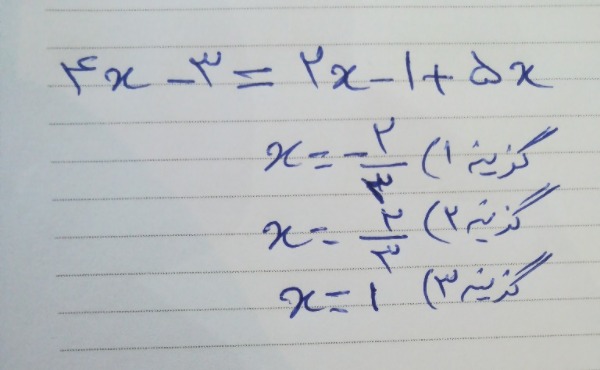 ۴x - ۳ = ۲x - ۱ + ۵x
گزینه ۱) x = -۲/۳
گزینه ۲) x = ۲/۳
گزینه ۳) x = ۱